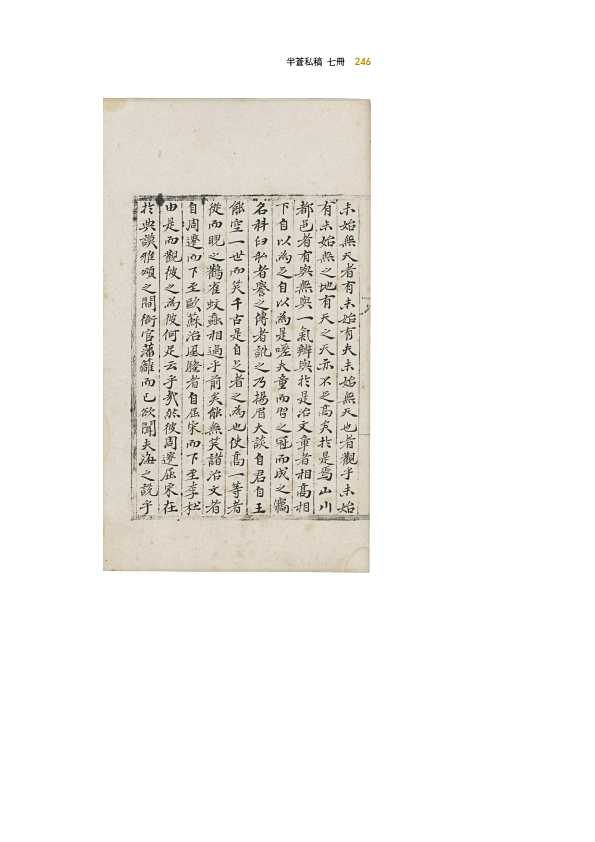 半蒼私稿 七冊 246
未始無天者有未始有夫未始無天也者觀乎未始
有未始無之地有天之天亦不足高矣於是焉山川
都邑者有與無與一氣辨與於是治文章者相高相
下自以為足自以為是嗟夫童而習之冠而成之
名科臼私者譽之傳者訛之乃揚眉大談自君自王
能空一世而笑千古是自足者之為也使高一等者
從而睨之鸛雀蚊蝱相過乎前矣能無笑諸治文者
自周遷而下至歐蘇治風騷者自屈宋而下至李杜
由是而觀彼之為彼何足云乎哉於彼周遷屈宋在
於典謨雅頌之間衙官藩籬而已欲聞夫海之說乎